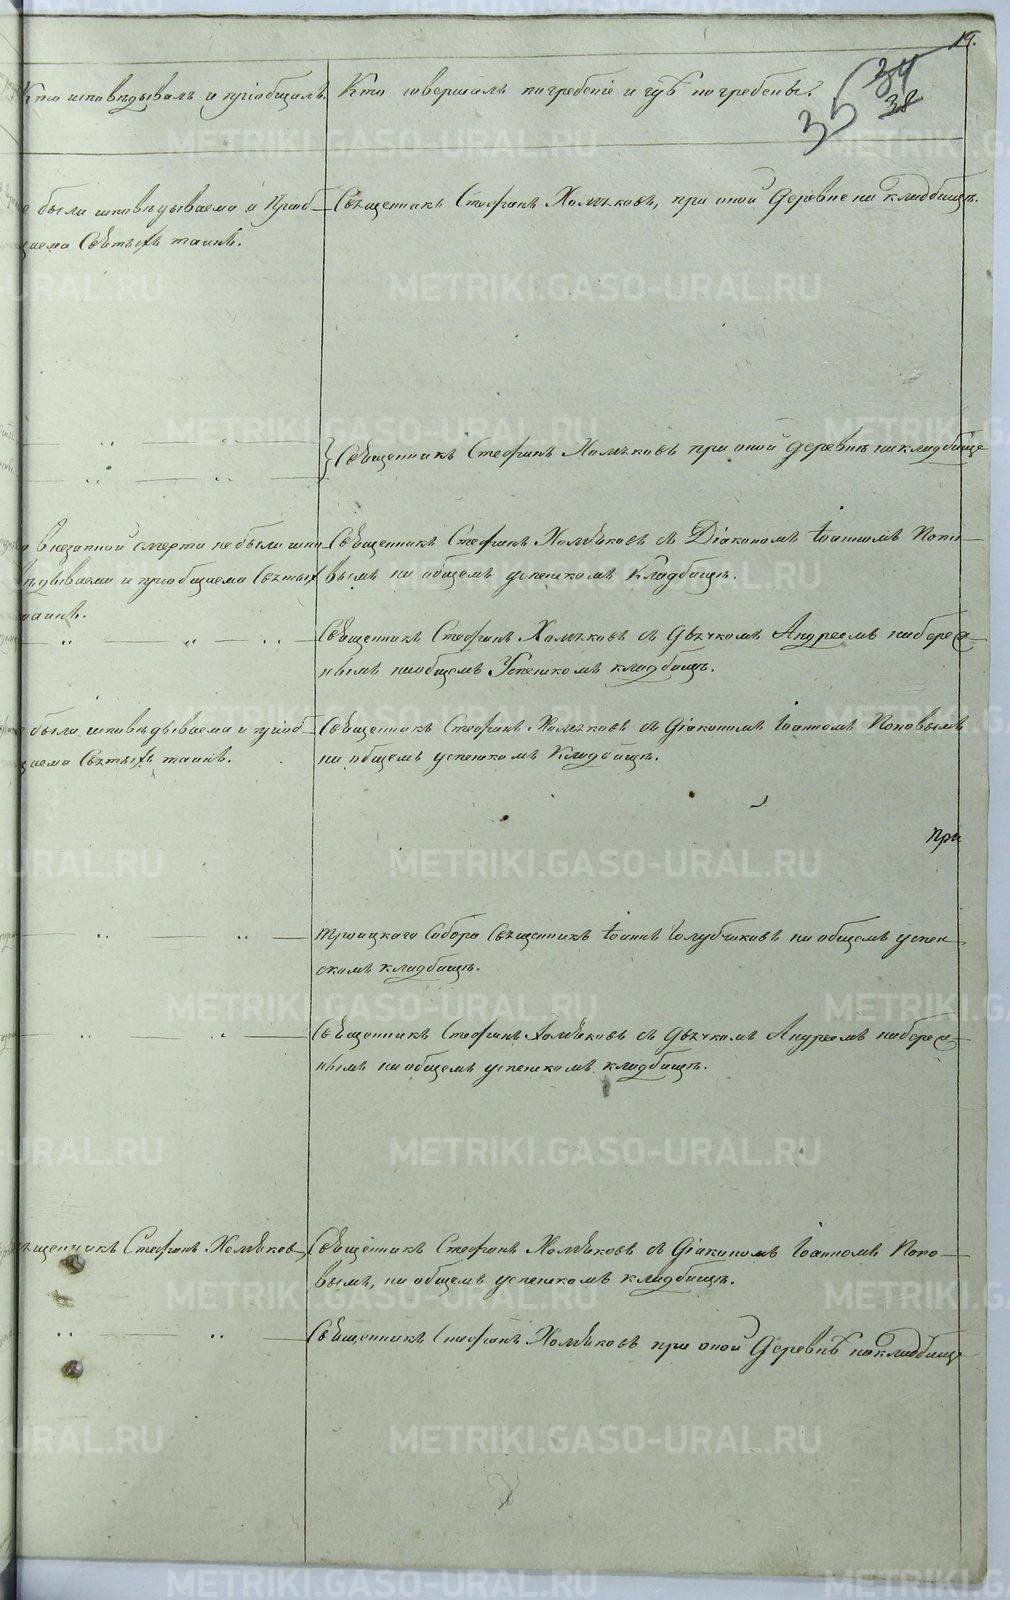 19.
34
35
38
Кто исповѣдывалъ и пріобщалъ.
Кто совершалъ погребеніе и гдѣ погребены.
были исповѣдываема и пріоб-
щаема Святыхъ таинъ.
Священникъ Стефанъ Хомяковъ, при оной деревне на кладбищѣ.
Священникъ Стефанъ Хомяковъ при оной деревнѣ на кладбище
внезапной смерти не были испо-
вѣдываема и пріобщаема Святыхъ
таинъ.
Священникъ Стефанъ Хомяковъ съ Діакономъ Іоанномъ Попо-
вымъ на общемъ успенскомъ кладбищѣ.
Священникъ Стефанъ Хомяковъ съ дьячкомъ Андреемъ набереж-
нымъ на общемъ Успенскомъ кладбищѣ.
были исповѣдываема и пріоб-
щаема Святыхъ таинъ.
Священникъ Стефанъ Хомяковъ съ діакономъ Іоанномъ Поповымъ
на общемъ успенскомъ кладбищѣ.
при
троицкаго Собора Священникъ Іоаннъ Голубчиковъ на общемъ успен-
скомъ кладбищѣ.
Священникъ Стефанъ Хомяковъ съ дьячкомъ Андреемъ набереж-
нымъ на общемъ успенскомъ кладбищѣ.
Священникъ Стефанъ Хомяковъ
Священникъ Стефанъ Хомяковъ съ діакономъ Іоанномъ Попо-
вымъ, на общемъ успенскомъ кладбищѣ.
Священникъ Стефанъ Хомяковъ при оной деревнѣ на кладбище
METRIKI.GASO-URAL.RU